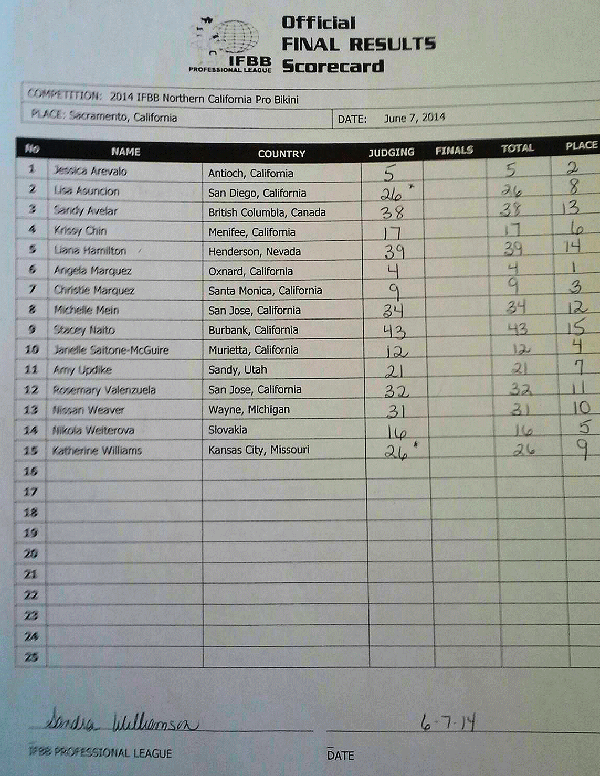 Official
FINAL RESULTS
Scorecard
IFBB
PROFESSIONAL LEAGUE
COMPETITION: 2014 IFBB Northern California Pro Bikini
PLACE: Sacramento, California DATE: June 7, 2014
No NAME COUNTRY JUDGING FINALS TOTAL PLACE
1 Jessica Arevalo Antioch, California 5 5 2
2 Lisa Asuncion San Diego, California 26* 26 8
3 Sandy Avelar British Columbia, Canada 38 38 13
4 Krissy Chin Menifee, California 17 17 6
5 Liana Hamilton Henderson, Nevada 39 39 14
6 Angela Marquez Oxnard, California 4 4 1
7 Christie Marquez Santa Monica, California 9 9 3
8 Michelle Mein San Jose, California 34 34 12
9 Stacey Naito Burbank, California 43 43 15
10 Janelle Saitone-McGuire Murietta, California 12 12 4
11 Amy Updike Sandy, Utah 21 21 7
12 Rosemary Valenzuela San Jose, California 32 32 11
13 Nissan Weaver Wayne, Michigan 31 31 10
14 Nikola Weiterova Slovakia 16 16 5
15 Katherine Williams Kansas City, Missouri 26* 26 9
16
17
18
19
20
21
22
23
24
25
Sandra Williamson 6-7-14
IFBB PROFESSIONAL LEAGUE DATE